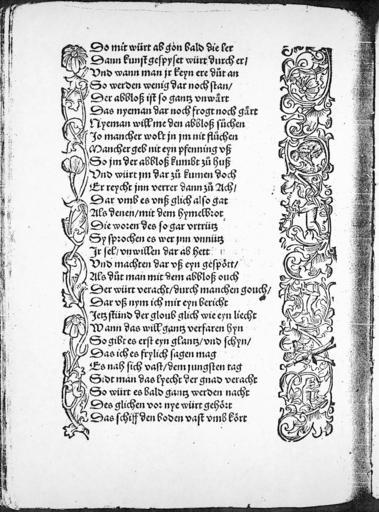 Do mit würt ab gon bald die ler
Dann kunst gespyset würt durch er/
Vnd wann man jr keyn ere düt an
So werden wenig dar noch stan/
Der abbloß ist so gantz vnwärt
Das nyeman dar noch frogt noch gärt
Nyeman will me den abbloß süchen
Jo mancher wolt jn jm nit flüchen
Mancher geb nit eyn pfenning vß
So jm der abbloß kumbt zü huß
Vnd würt jm dar zü kumen doch
Er reycht jnn verrer dann zü Ach/
Dar vmb es vnß glich also gat
Als denen/mit dem hymelbrot
Die woren des so gar vrrrütz
Sy sprochen es wer jnn vnnütz
Jr sel/vnwillen dar ab hett
Vnd machten dar vß eyn gespött/
Als düt man mit dem abbloß ouch
Der würt veracht/durch manchen gouch/
Dar vß nym ich mit eyn bericht
Jetz stünd der gloub glich wie eyn liecht
Wann das will gantz verfaren hyn
So gibt es erst eyn glantz/vnd schyn/
Das ich es frylich sagen mag
Es nah sich vast/dem jungsten tag
Sidt man das lyecht der gnad veracht
So würt es bald gantz werden nacht
Des glichen vor nye würt gehört
Das schiff den boden vast vmb kört